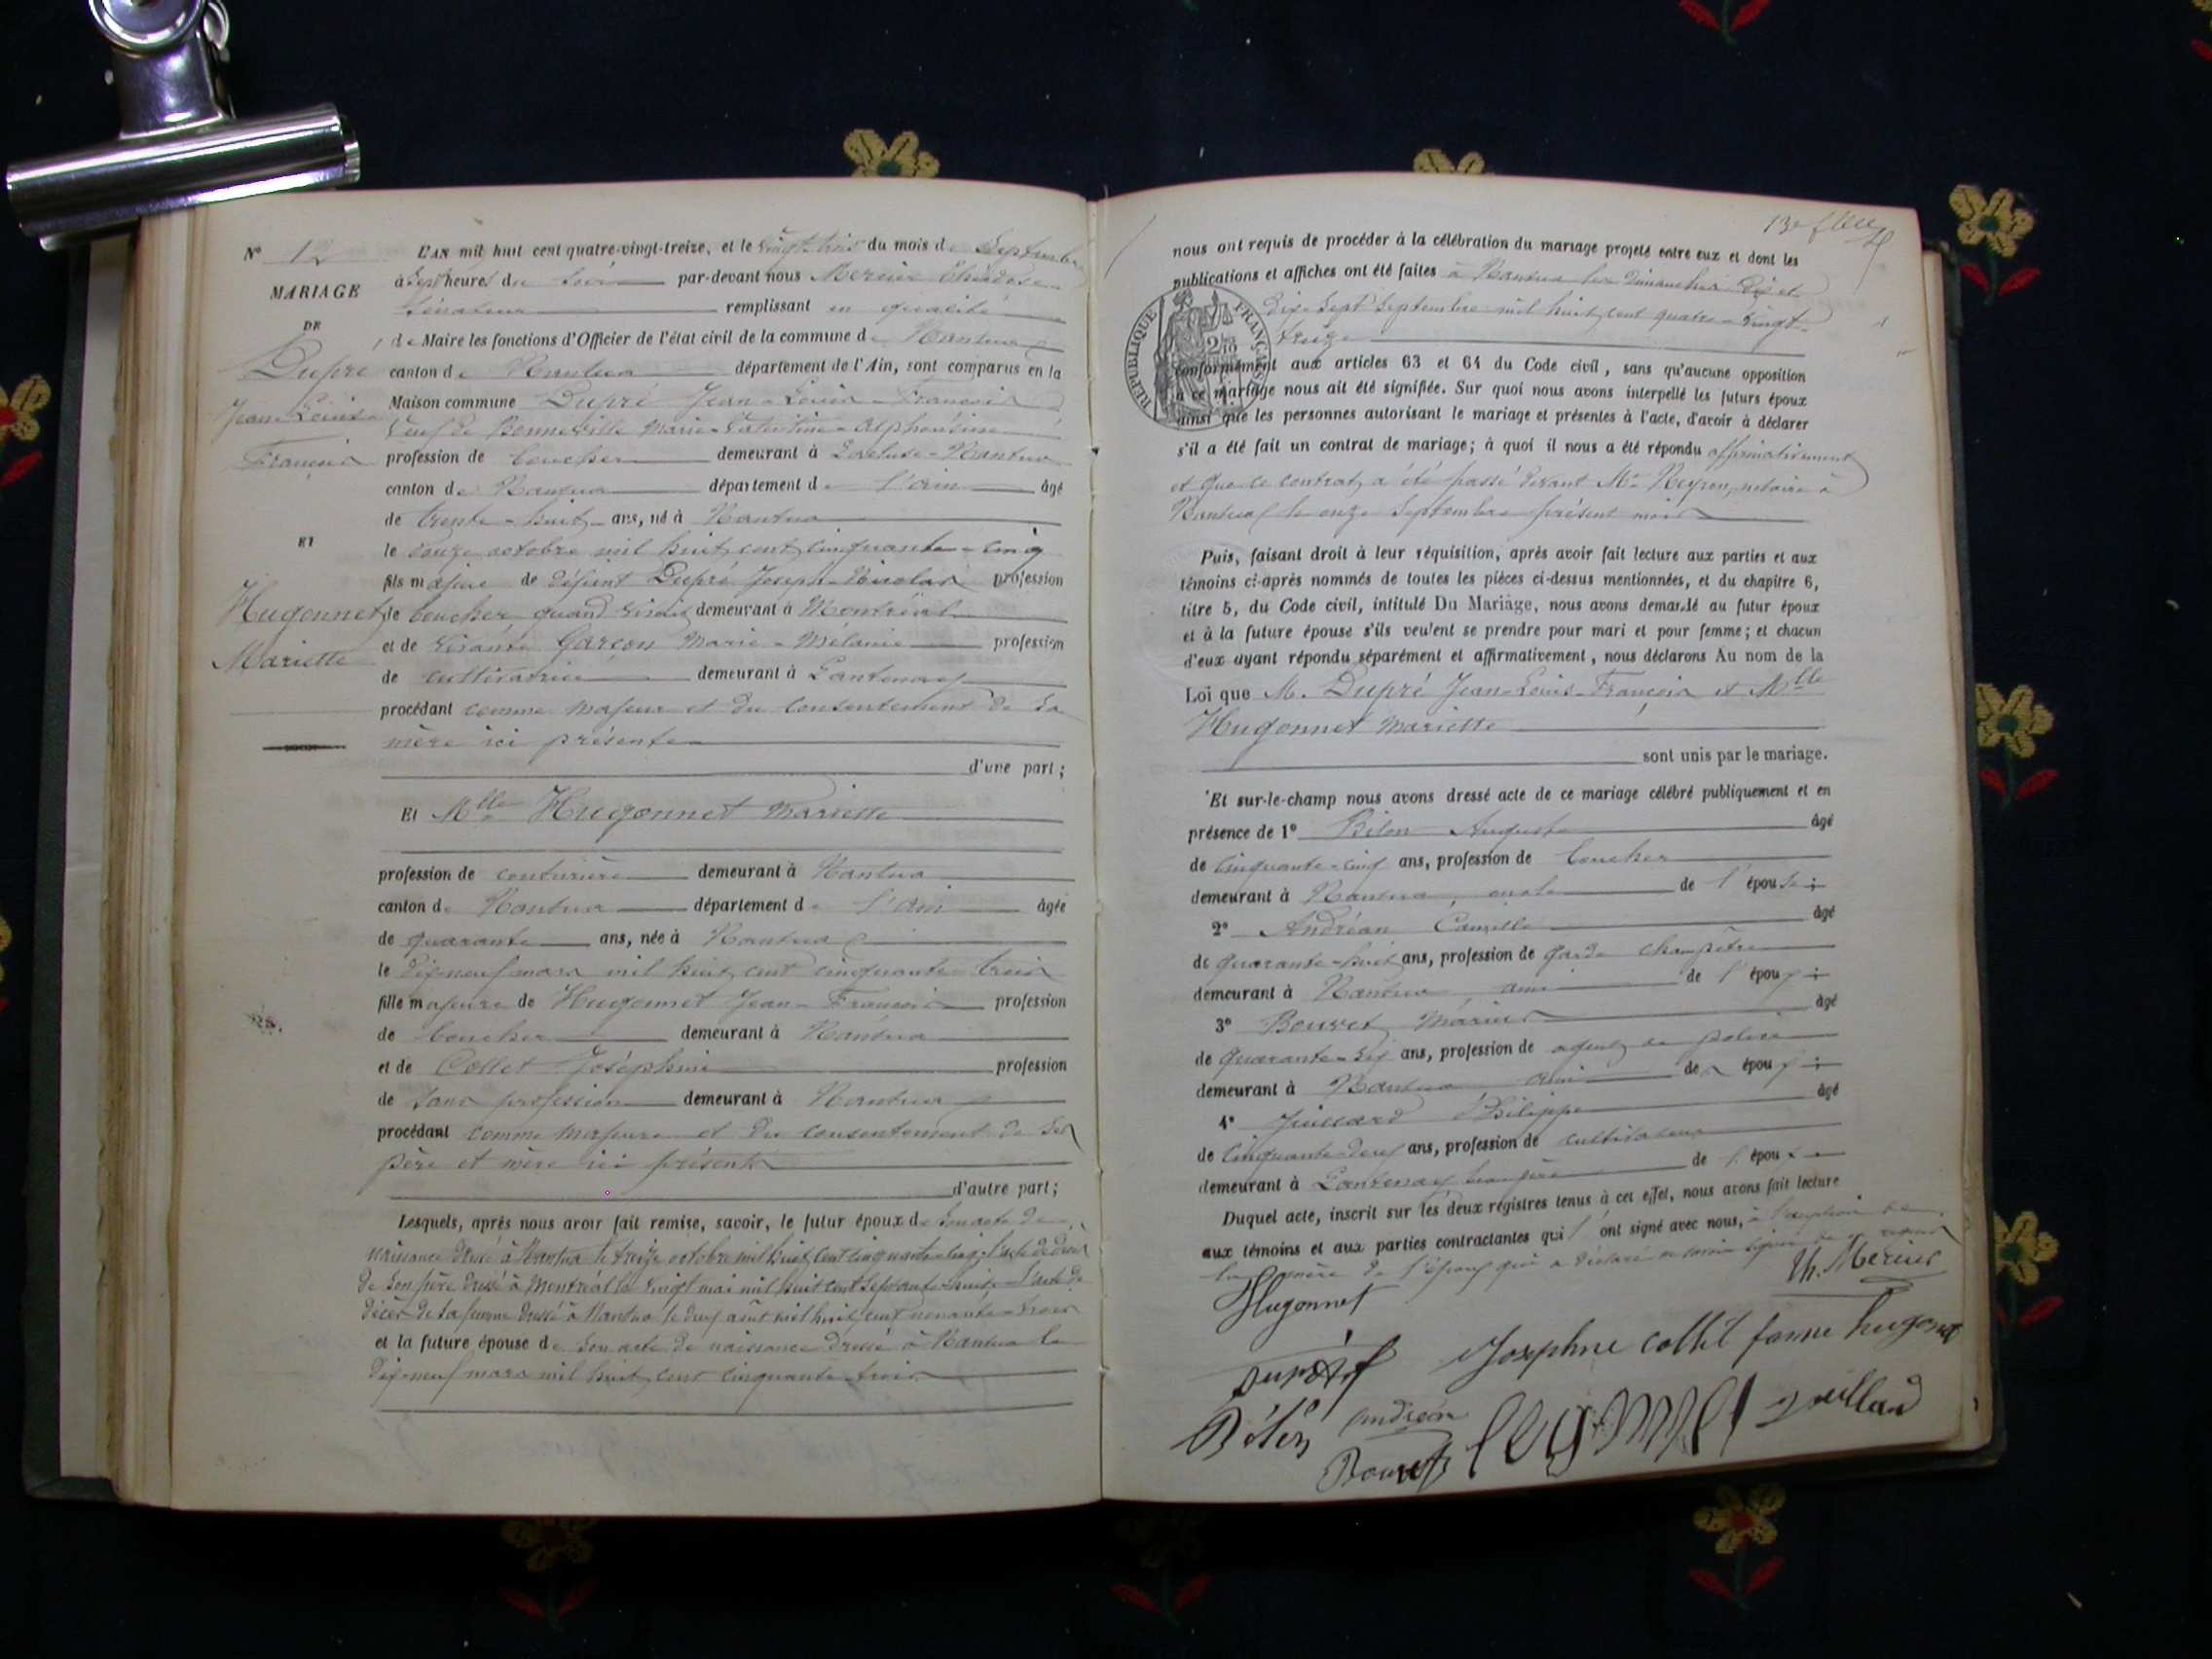 N° 12
MARIAGE
DE
Dupré
Jean-Louis
François
ET
Hugonnet
Mariette
L'AN mil huit cent quatre-vingt-treize, et le vingt trois du mois de Septembre
à sept heures du soir par-devant nous Mercier Théodose
Sénateur remplissant en qualité
de Maire les fonctions d'Officier de l'état civil de la commune de Nantua
canton de Nantua département de l'Ain, sont comparus en la
Maison commune Dupré Jean-Louis-François
Veuf de Bonneville Marie Alphonsine
profession de boucher demeurant à Nantua
canton de Nantua département de l'Ain âgé
de trente-huit ans, né à Nantua
le douze octobre mil huit cent cinquante-cinq
fils majeur de défunt Dupré Joseph-Nicolas profession
de boucher quand vivait demeurant à Montréal
et de vivante Garçon Marie-Mélanie profession
de cultivatrice demeurant à Lantenay
procédant comme majeur et du consentement de sa
mère ici présente
d'une part;
Et Mlle Hugonnet Mariette
profession de couturière demeurant à Nantua
canton de Nantua département de l'Ain âgée
de quarante ans, née à Nantua
le dix-neuf mars mil huit cent cinquante-trois
fille majeure de Hugonnet Jean-François profession
de boucher demeurant à Nantua
et de Collet Joséphine profession
de sans profession demeurant à Nantua
procédant comme majeure et du consentement de ses
père et mère ici présents
d'autre part;
Lesquels, après nous avoir fait remise, savoir, le futur époux de son acte de
naissance dressé à Nantua le treize octobre mil huit cent cinquante-cinq, l'acte de décès
de son père dressé à Montréal le vingt mai mil huit cent septante-huit, l'acte de
décès de sa femme dressé à Nantua le deux août mil huit cent nonante-trois
et la future épouse de son acte de naissance dressé à Nantua le
dix-neuf mars mil huit cent cinquante trois
nous ont requis de procéder à la célébration du mariage projeté entre eux et dont les
publications et affiches ont été faites à Nantua les Dimanches dix et
dix-sept Septembre mil huit cent quatre-vingt-
treize
RÉPUBLIQUE FRANÇAISE
conformément aux articles 63 et 64 du Code civil, sans qu'aucune opposition
à ce mariage nous ait été signifiée. Sur quoi nous avons interpellé les futurs époux
ainsi que les personnes autorisant le mariage et présentes à l'acte, d'avoir à déclarer
s'il a été fait un contrat de mariage; à quoi il nous a été répondu affirmativement
et que ce contrat a été passé devant Me Neyron, notaire à
Nantua le onze Septembre présent mois
Puis, faisant droit à leur réquisition, après avoir fait lecture aux parties et aux
témoins ci-après nommés de toutes les pièces ci-dessus mentionnées, et du chapitre 6,
titre 5, du Code civil, intitulé Du Mariage, nous avons demandé au futur époux
et à la future épouse s'ils veulent se prendre pour mari et pour femme; et chacun
d'eux ayant répondu séparément et affirmativement, nous déclarons Au nom de la
Loi que M. Dupré Jean-Louis-François et Mlle
Hugonnet Mariette
sont unis par le mariage.
Et sur-le-champ nous avons dressé acte de ce mariage célébré publiquement et en
présence de 1° Auguste âgé
de cinquante-cinq ans, profession de boucher
demeurant à Nantua, oncle de l'épouse;
2° Andréan Camille âgé
de quarante-huit ans, profession de garde champêtre
demeurant à Nantua ami de l'époux;
3° Bouvet Marius âgé
de quarante-six ans, profession de agent de police
demeurant à Nantua ami de époux;
4° Juillard Philippe âgé
de cinquante-deux ans, profession de cultivateur
demeurant à Lantenay beau-père de l'époux
Duquel acte, inscrit sur les deux registres tenus à cet effet, nous avons fait lecture
aux témoins et aux parties contractantes qui ont signé avec nous, à l'exception de
la mère de l'époux qui a déclaré ne savoir signer de ce requis
Hugonnet
Th. Mercier
Dupré
Josephine collet femme hugonnet
andréan
Bouvet
hugonnet
juillard